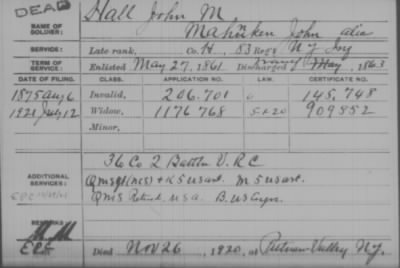 DEAD
NAME OF SOLDIER: Hall John M
Mahnken John alias
SERVICE: Late rank, Co. H, 83 Reg't N Y Inf
TERM OF SERVICE: Enlisted May 27, 1861 Discharged May, 1863
DATE OF FILING. CLASS. APPLICATION NO. LAW. CERTIFICATE NO.
1875 Aug 6 Invalid, 206.701 145,748
1921 July 12 Widow, 1176 768 909852
Minor,
ADDITIONAL SERVICES: 36 Co 2 Battn V.R.C
M 5 US Art.
QMS Retired USA. B. US Engrs.
REMARKS:
Died Nov 26, 1920, at Putnam Valley N.Y.